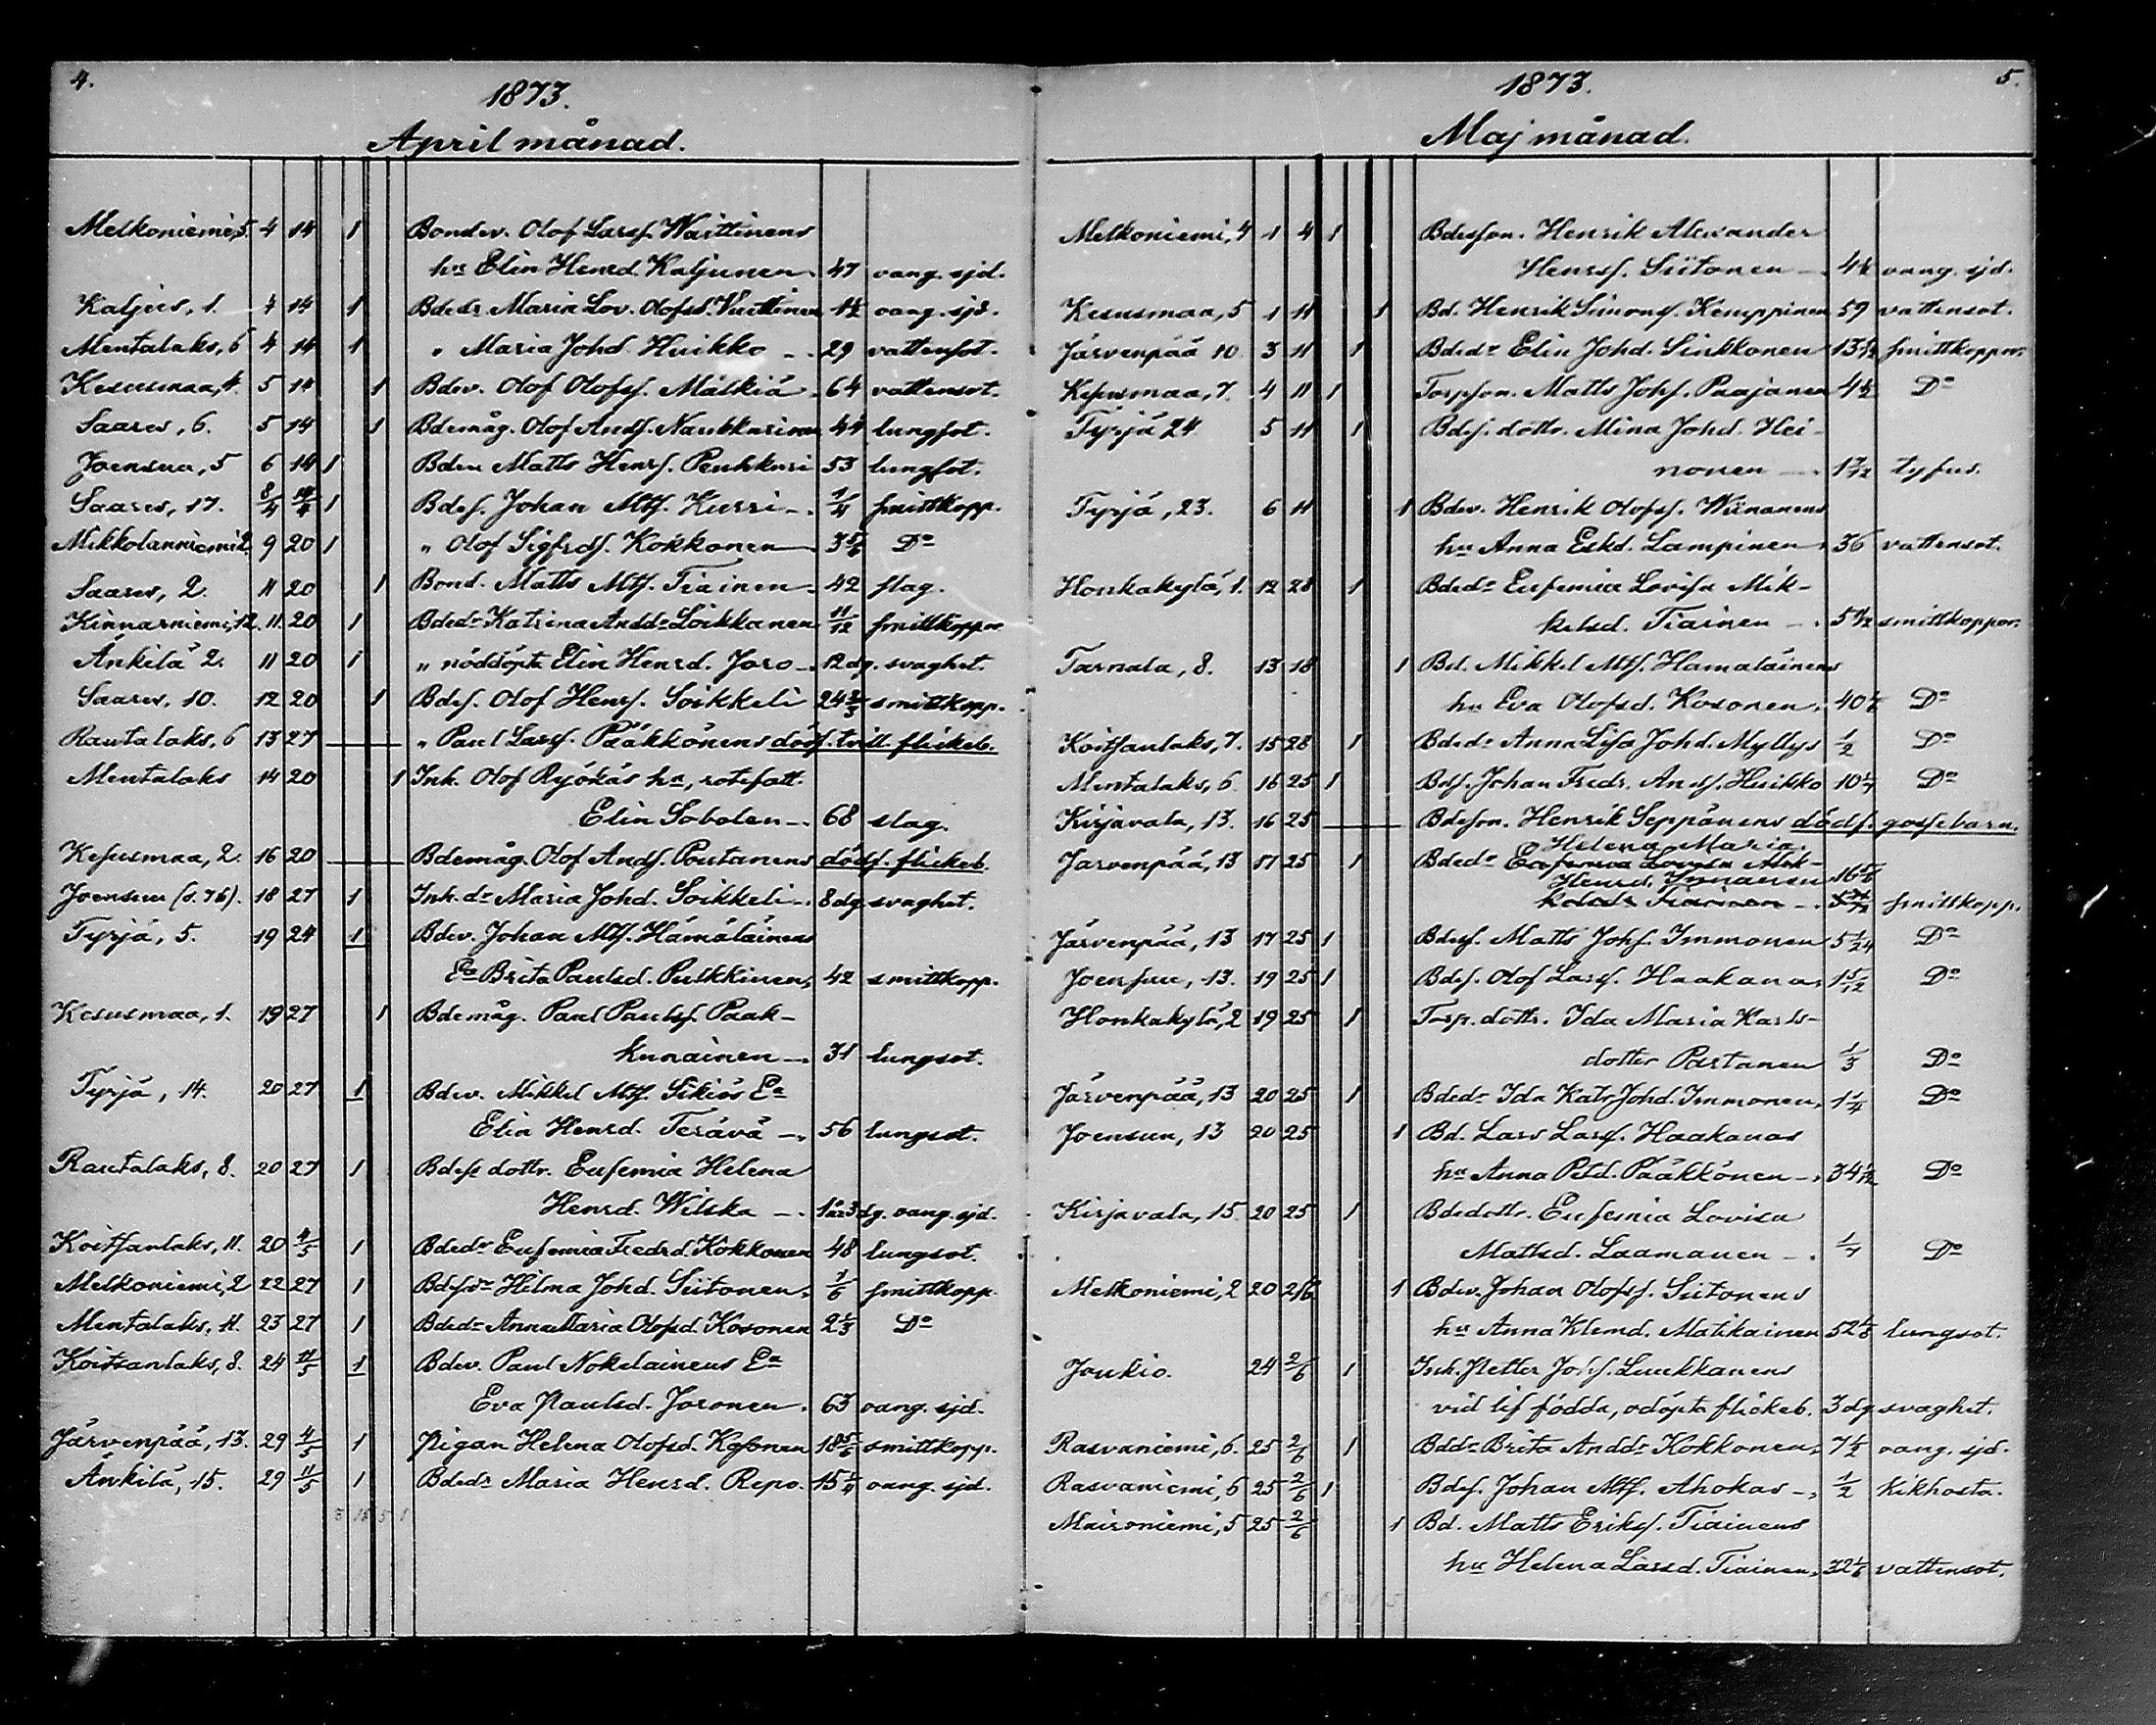 4.
1873.
April månad.
Melkoniemi, 5. 4 14 1 Bondev. Olof Larsf. Waittinens
hu Elin Henrd. Kaljunen. 47 oang. sjd.
Kaljus, 1. 4 14 1 Bdedr Maria Lov. Olofsd. Vaittinen 1½ oang. sjd.
Mentalaks, 6 4 14 1 " Maria Johd. Huikko 29 vattensot.
Kesusmaa, 4. 5 14 1 Bdev. Olof Olofsf. Mälkiä 64 vattensot.
Saares, 6. 5 14 1 Bdemåg. Olof Andf. Naukkarinen 44 lungsot.
Joensuu, 5 6 14 1 Bden Matts Henrf. Peuhkuri 53 lungsot.
Saares, 17. 8/4 14/4 1 Bdes. Johan Mtf. Kurri 1/4 smittkopp.
Mikkolanniemi 2. 9 20 1 " Olof Sigfrdf. Kokkonen 3 5/6 Do
Saares, 2. 11 20 1 Bond. Matts Mtf. Tiainen 42 slag.
Kinnarniemi, 12. 11. 20 1 Bdedr Katrina Anddr Loikkanen 11/12 smittkoppor
Änkilä 2. 11 20 1 " nöddöpta Elin Henrd. Joro 12 dg. svaghet.
Saares. 10. 12 20 1 Bdes. Olof Henrf. Soikkeli 24 2/3 smittkopp.
Rautalaks, 6 13 27 " Paul Larsf. Pääkkönens dödf. tvill. flickeb.
Mentalaks 14 20 1 Inh. Olof Ryökäs hu, rotefatt.
Elin Sobolen 68 slag.
Kesusmaa, 2. 16 20 Bdemåg. Olof Andf. Poutanens dödf. flickeb.
Joensuu (s. 76). 18 27 1 Inh. dr Maria Johd. Soikkeli 8 dg. svaghet.
Tyrjä, 5. 19 24 1 Bdev. Johan Mtf. Hämäläinens
Ea Brita Paulsd. Pulkkinen, 42 smittkopp.
Kesusmaa, 1. 19 27 1 Bdemåg. Paul Paulsf. Paak-
kunainen 31 lungsot.
Tyrjä, 14. 20 27 1 Bdev. Mikkel Mtf. Sikiös Ea
Elin Henrd. Terävä 56 lungsot.
Rautalaks, 8. 20 27 1 Bdes dottr. Eufemia Helena
Henrd. Wilska 1 år 3 dg. oang. sjd.
Koitsanlaks, 11. 20 4/5 1 Bdedr Eufemia Fredrd. Kokkonen 48 lungsot.
Melkoniemi, 2 22 27 1 Bdesdr Hilma Johd. Siitonen, 1/6 smittkopp.
Mentalaks, 11. 23 27 1 Bdedr Anna Maria Olofsd. Kosonen 2 1/3 Do
Koitsanlaks, 8. 24 11/5 1 Bdev. Paul Nokelainens Ea
Eva Paulsd. Joronen. 63 oang. sjd.
Järvenpää, 13. 29 4/5 1 Pigan Helena Olofsd. Kosonen 18 5/6 smittkopp.
Änkilä, 15. 29 11/5 1 Bdedr Maria Henrd. Repo. 15 1/4 oang. sjd.
1873.
5.
Maj månad.
Melkoniemi, 4 1 4 1 Bdesson. Henrik Alexander
Henrsf. Siitonen 4½ oang. sjd.
Kesusmaa, 5 1 11 1 Bd. Henrik Simonsf. Kemppinen 59 vattensot.
Järvenpää 10 3 11 1 Bdedr Elin Johd. Sinkkonen smittkoppor.
Kesusmaa, 7. 4 11 1 Torpson. Matts Johf. Paajanen 4½ Do
Tyrjä 24 5 11 1 Bdes. dottr. Mina Johd. Hei-
nonen 1 7/12 tyfus.
Tyrjä, 23. 6 11 1 Bdev. Henrik Olofsf. Wänänens
hu Anna Eskd. Lampinen 36 vattensot.
Honkakylä, 1. 12 28 1 Bdedr Eufemia Lovisa Mik-
kelsd. Tiainen smittkoppor.
Tarnala, 8. 13 18 1 Bd. Mikkel Mtf. Hämäläinens
hu Eva Olofsd. Kosonen. Do
Koitsanlaks, 7. 15 28 1 Bdedr Anna Lisa Johd. Myllys 1/2 Do
Mentalaks, 6 16 25 1 Bdsf. Johan Fredr. Andf. Huikko 10 1/4 Do
Kirjavala, 13. 16 25 Bdeson. Henrik Seppänens dödf. gossebarn.
Helena Maria.
Järvenpää, 13 17 25 1 Bdedr Eufemia Lovisa Mik-
Henrd. Immonen 16 1/6
kelsdr Tiainen smittkopp.
Järvenpää, 13 17 25 1 Bdesf. Matts Johf. Immonen 5 1/24 Do
Joensuu, 13. 19 25 1 Bdes. Olof Larsf. Haakana 1 5/12 Do
Honkakylä, 2 19 25 1 Torp. dottr. Ida Maria Karls-
dotter Partanen 1/3 Do
Järvenpää, 13 20 25 1 Bdedr Ida Katr Johd. Immonen, 1 1/4 Do
Joensuu, 13 20 25 1 Bd. Lars Larsf. Haakanas
hu Anna Petd. Pääkkönen Do
Kirjavala, 15. 20 25 1 Bdedottr. Eufemia Lovisa
Mattsd. Laamanen Do
Melkoniemi, 2 20 2/6 1 Bdev. Johan Olofsf. Siitonens
hu Anna Klemd. Matikainen lungsot.
Joukio. 24 2/6 1 Inh. Petter Johf. Luukkanens
vid lif födda, odöpta flickeb. 3 dg svaghet.
Rasvaniemi, 6. 25 2/6 1 Bddr Brita Anddr Kokkonen, 7½ oang. sjd.
Rasvaniemi, 6 25 2/6 1 Bdes. Johan Mtf. Ahokas 1/2 kikhosta.
Maironiemi, 5 25 2/6 1 Bd. Matts Eriksf. Tiainens
hu Helena Larsd. Tiainen, 32 1/6 vattensot.